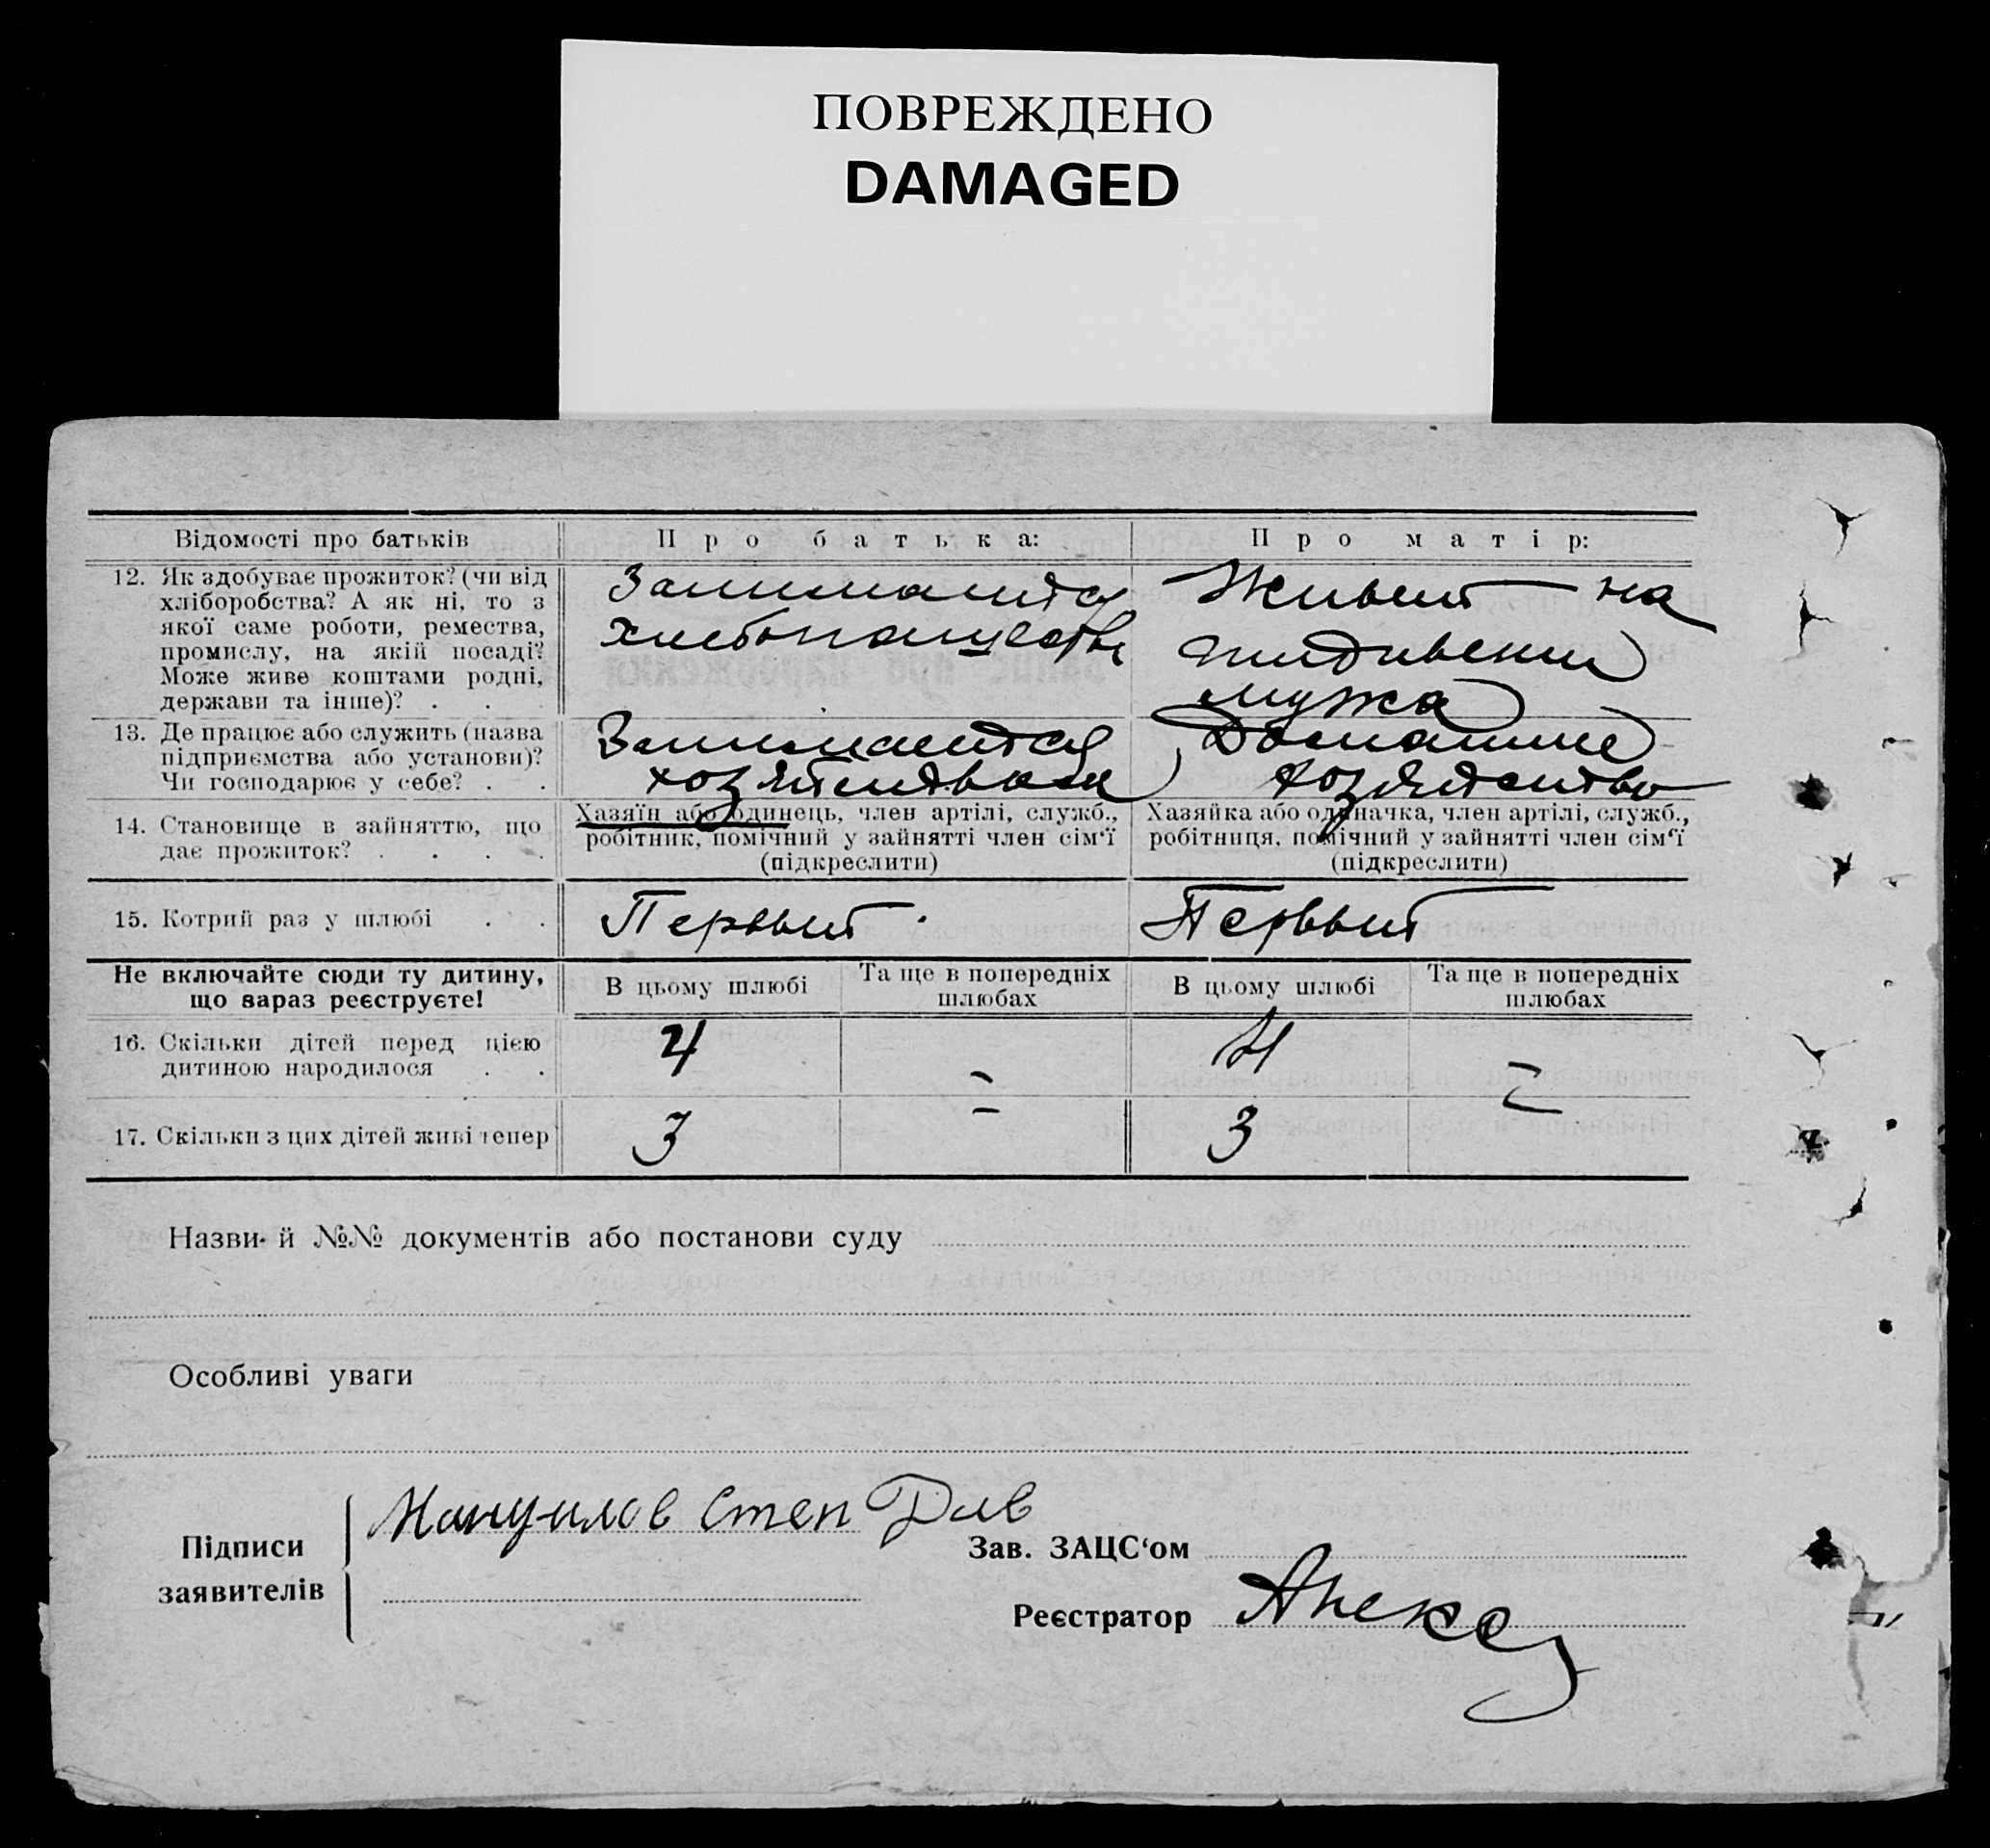 ПОВРЕЖДЕНО
DAMAGED
Відомості про батьків
Про батька:
Про матір:
12. Як здобуває прожиток? (чи від
хліборобства? А як ні, то з
якої саме роботи, ремества,
промислу, на якій посаді?
Може живе коштами родні,
держави та інше)? . .
Занимается
хлебопашеств
Живет на
иждивении
мужа
13. Де працює або служить (назва
підприємства або установи)?
Чи господарює у себе? . .
Занимается
хозяйством
Домашнее
хозяйство
14. Становище в зайняттю, що
дає прожиток? . . . .
Хазяїн або одинець, член артілі, служб.,
робітник, помічний у зайнятті член сім‘ї
(підкреслити)
Хазяйка або одиначка, член артілі, служб.,
робітниця, помічний у зайнятті член сім‘ї
(підкреслити)
15. Котрий раз у шлюбі . .
Первый
Первый
Не включайте сюди ту дитину,
що зараз реєструєте!
В цьому шлюбі
Та ще в попередніх
шлюбах
В цьому шлюбі
Та ще в попередніх
шлюбах
16. Скільки дітей перед цією
дитиною народилося . .
4
–
4
–
17. Скільки з цих дітей живі тепер
3
–
3
–
Назви й №№ документів або постанови суду
Особливі уваги
Підписи
заявителів
Мануилов Степ
Зав. ЗАЦС‘ом
Реєстратор